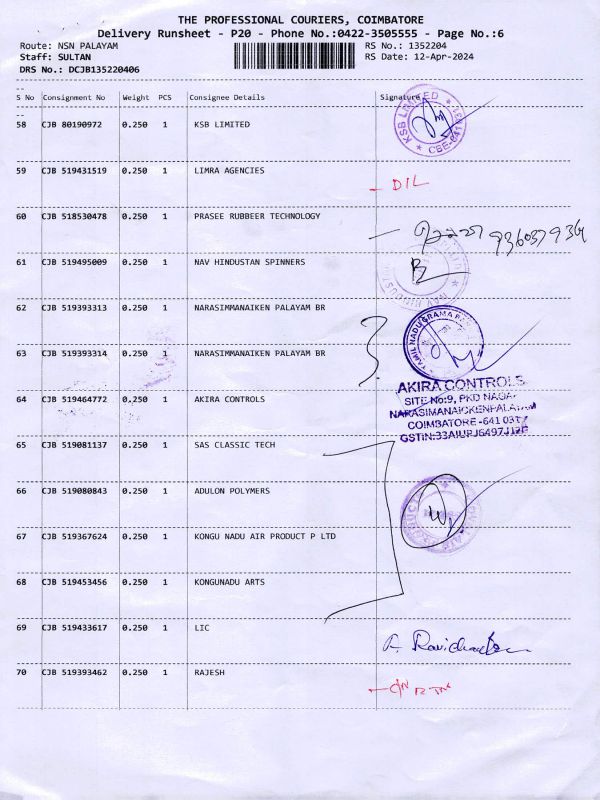 THE PROFESSIONAL COURIERS, COIMBATORE
Delivery Runsheet - P20 - Phone No.:0422-3505555 - Page No.:6
Route: NSN PALAYAM
RS No.: 1352204
Staff: SULTAN
RS Date: 12-Apr-2024
DRS No.: DCJB135220406
S No Consignment No Weight PCS Consignee Details Signature
58 CJB 80190972 0.250 1 KSB LIMITED
KSB LIMITED
59 CJB 519431519 0.250 1 LIMRA AGENCIES
- DIL
60 CJB 518530478 0.250 1 PRASEE RUBBEER TECHNOLOGY
61 CJB 519495009 0.250 1 NAV HINDUSTAN SPINNERS
62 CJB 519393313 0.250 1 NARASIMMANAIKEN PALAYAM BR
63 CJB 519393314 0.250 1 NARASIMMANAIKEN PALAYAM BR
64 CJB 519464772 0.250 1 AKIRA CONTROLS
AKIRA CONTROLS
SITE No:9, PKD NAGAR
NARASIMANAICKENPALAYAM
COIMBATORE - 641 031
65 CJB 519081137 0.250 1 SAS CLASSIC TECH
66 CJB 519080843 0.250 1 ADULON POLYMERS
67 CJB 519367624 0.250 1 KONGU NADU AIR PRODUCT P LTD
68 CJB 519453456 0.250 1 KONGUNADU ARTS
69 CJB 519433617 0.250 1 LIC
70 CJB 519393462 0.250 1 RAJESH